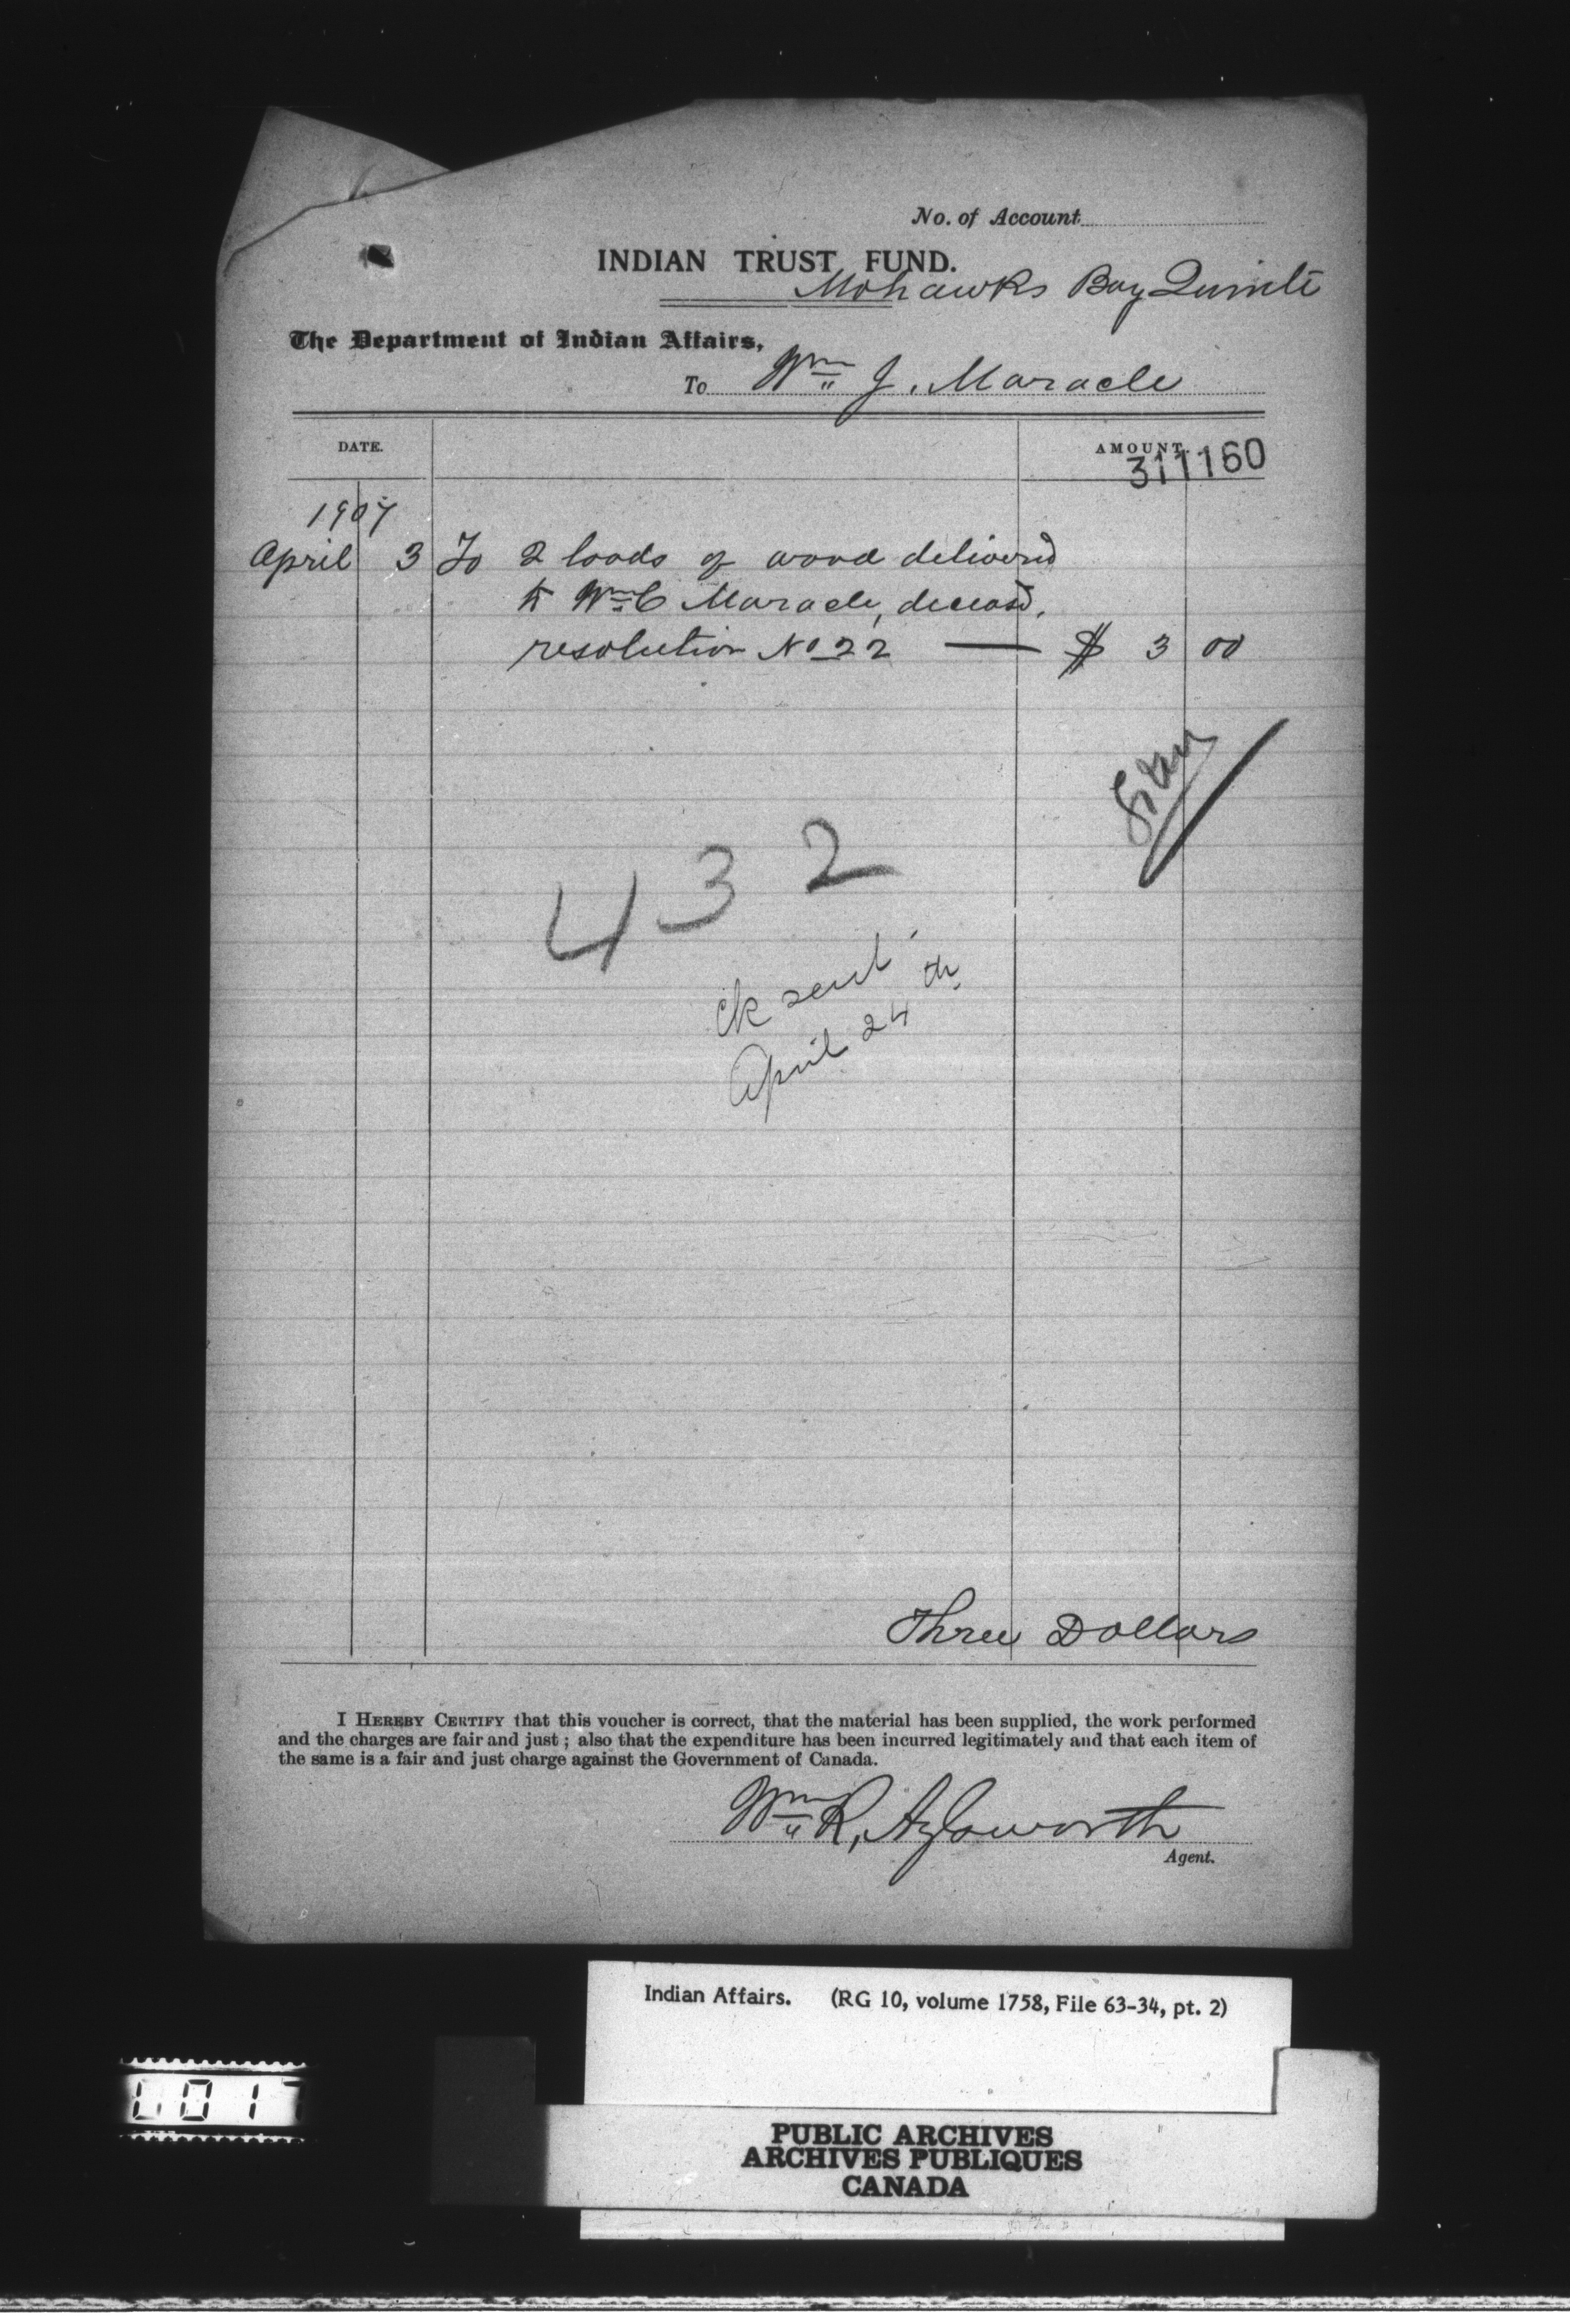 No. of Account
INDIAN TRUST FUND.
Mohawks Bay Quinte
The Department of Indian Affairs,
To Wm J. Maracle
DATE.
AMOUNT.
311160
1907
April 3 To 2 loads of wood delivered
to Wm C Maracle, deceasd,
resolution No 22 — $ 3 00
432
ck sent
April 24th
Three Dollars
I HEREBY CERTIFY that this voucher is correct, that the material has been supplied, the work performed
and the charges are fair and just; also that the expenditure has been incurred legitimately and that each item of
the same is a fair and just charge against the Government of Canada.
Wm R, Aylsworth
Agent.
Indian Affairs. (RG 10, volume 1758, File 63-34, pt. 2)
PUBLIC ARCHIVES
ARCHIVES PUBLIQUES
CANADA